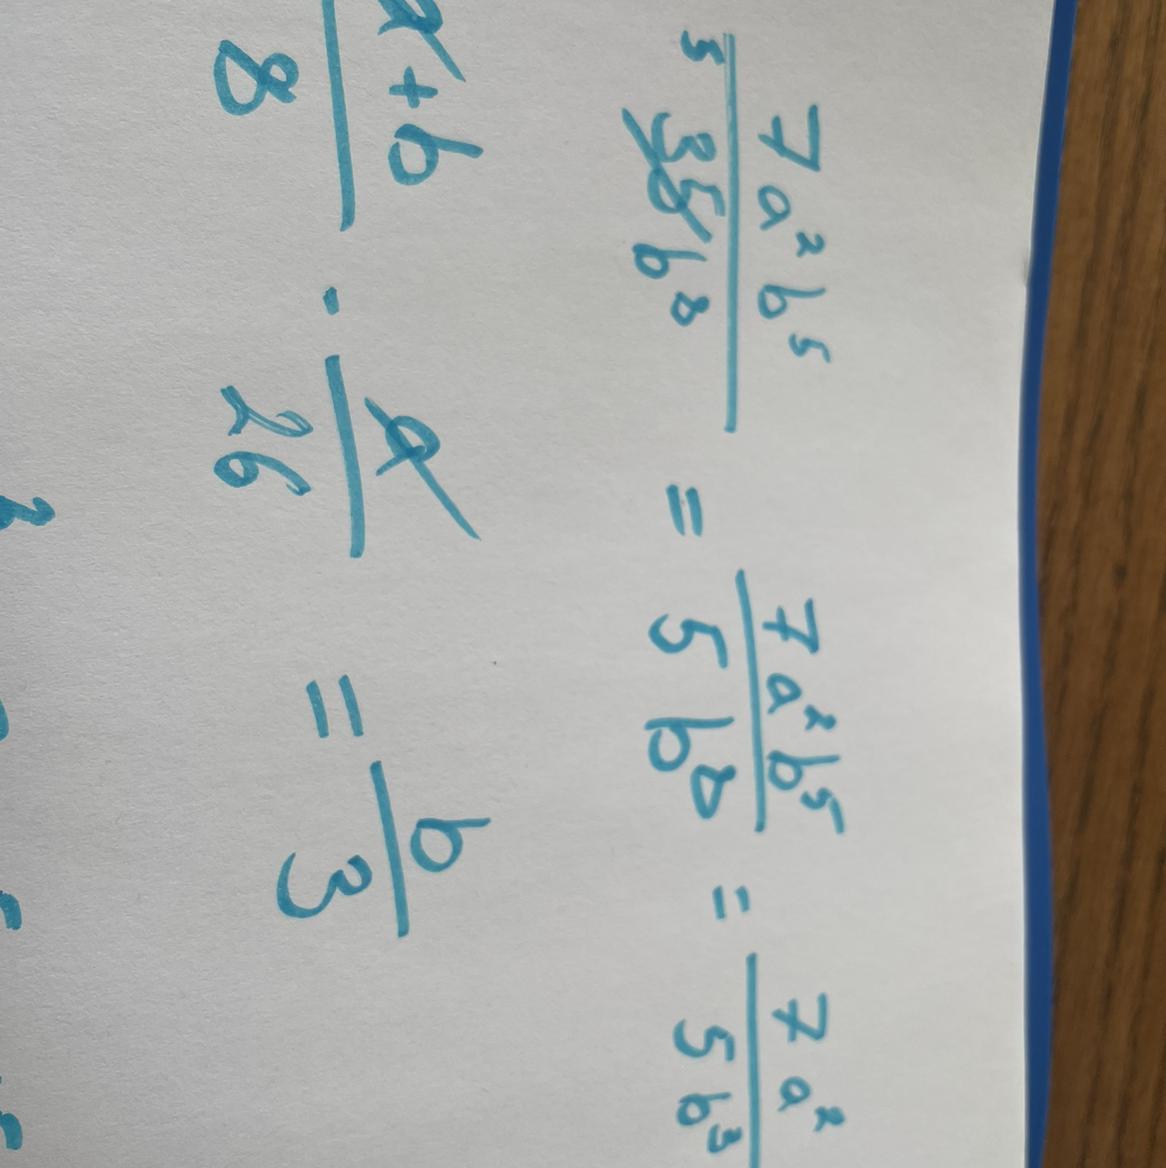 7a²b⁵ / 5 35b⁸ = 7a²b⁵ / 5b⁸ = 7a² / 5b³
a+b / 8 · a / 26 = b / 3